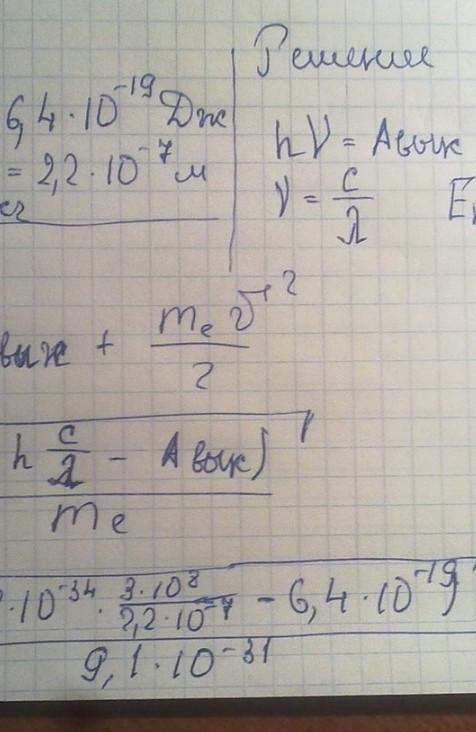 Решение
6,4·10⁻¹⁹ Дж
= 2,2·10⁻⁷ м
hν = Aвых
ν = c/λ E
вых + mₑ v²/2
h c/λ - Aвых)
mₑ
·10⁻³⁴ · 3·10⁸/2,2·10⁻⁷ - 6,4·10⁻¹⁹)
9,1·10⁻³¹